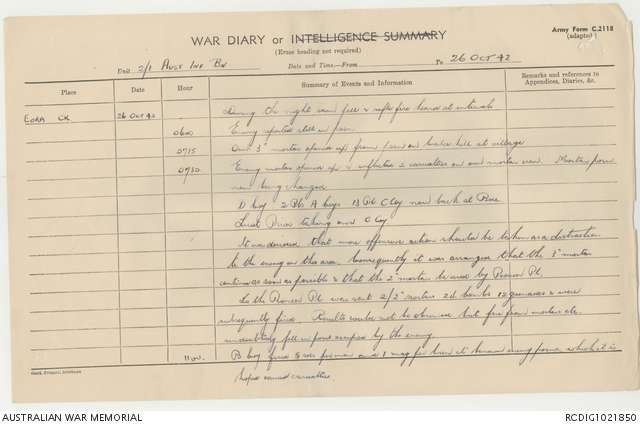 WAR DIARY or INTELLIGENCE SUMMARY
Army Form C.2118
(adapted)
(Erase heading not required)
Unit 2/1 Aust Inf Bn Date and Time—From To 26 OCT 42
Place Date Hour Summary of Events and Information Remarks and references to Appendices, Diaries, &c.
EORA CK 26 Oct 42 During the night rain fell & rifle fire heard at intervals
0600 Enemy reported still in posn
0715 Our 3" mortar opened up from posn on hill at village
0730 Enemy mortar opened up & inflicted 2 casualties on our mortar crew. Mortar posn
now being changed
D Coy 2 Pls A Coys 13 Pl C Coy now back at
Lieut taking over C Coy
It was desired that more offensive action should be taken as a distraction
to the enemy in this area. Consequently it was arranged that the 3" mortar
continue as soon as possible & that the 2" mortar be used by Pioneer Pl.
To the Pioneer Pl was sent 2/2" mortars 26 bombs 12 grenades & were
subsequently fired. Results could not be observed but fire from mortars etc.
undoubtedly fell in posns occupied by the enemy
1100 B Coy fired & 1 mag Bren at known enemy posns which it is
hoped caused casualties
AUSTRALIAN WAR MEMORIAL
RCDIG1021850